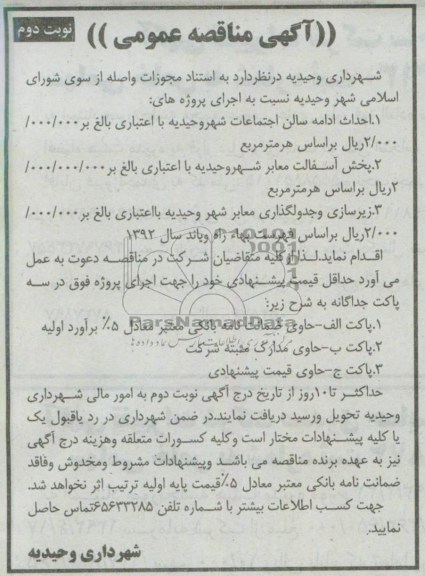 نوبت دوم
((آگهی مناقصه عمومی ))
شهرداری وحیدیه درنظردارد به استناد مجوزات واصله از سوی شورای
اسلامی شهر وحیدیه نسبت به اجرای پروژه های:
۱.احداث ادامه سالن اجتماعات شهروحیدیه با اعتباری بالغ بر۰۰۰/۰۰۰/
۲/۰۰۰ریال براساس هرمترمربع
۲.پخش آسفالت معابر شهروحیدیه با اعتباری بالغ بر۰۰۰/۰۰۰/۰۰۰/
۲ریال براساس هرمترمربع
۳.زیرسازی وجدولگذاری معابر شهر وحیدیه بااعتباری بالغ بر۰۰۰/۰۰۰/
۲/۰۰۰ریال براساس فهرست بهاء راه وباند سال ۱۳۹۲
اقدام نماید.لذا از کلیه متقاضیان شرکت در مناقصه دعوت به عمل
می آورد حداقل قیمت پیشنهادی خود را جهت اجرای پروژه فوق در سه
پاکت جداگانه به شرح زیر:
۱.پاکت الف-حاوی ضمانت نامه بانکی معتبر معادل ۵٪ برآورد اولیه
ParsNamadData
۲.پاکت ب-حاوی مدارک مثبته شرکت
۳.پاکت ج-حاوی قیمت پیشنهادی
حداکثر تا۱۰روز از تاریخ درج آگهی نوبت دوم به امور مالی شهرداری
وحیدیه تحویل ورسید دریافت نمایند.در ضمن شهرداری در رد یاقبول یک
یا کلیه پیشنهادات مختار است وکلیه کسورات متعلقه وهزینه درج آگهی
نیز به عهده برنده مناقصه می باشد وپیشنهادات مشروط ومخدوش وفاقد
ضمانت نامه بانکی معتبر معادل ۵٪قیمت پایه اولیه ترتیب اثر نخواهد شد.
جهت کسب اطلاعات بیشتر با شماره تلفن ۶۵۶۳۳۲۸۵تماس حاصل
نمایید.
شهرداری وحیدیه